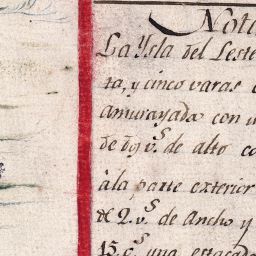 Nota
La Ysla del Leste
ta, y cinco varas
amurayada con u
de dos v.s de alto co
âla parte exterior
de 2. v.s de Ancho y
15. c.s una estacada